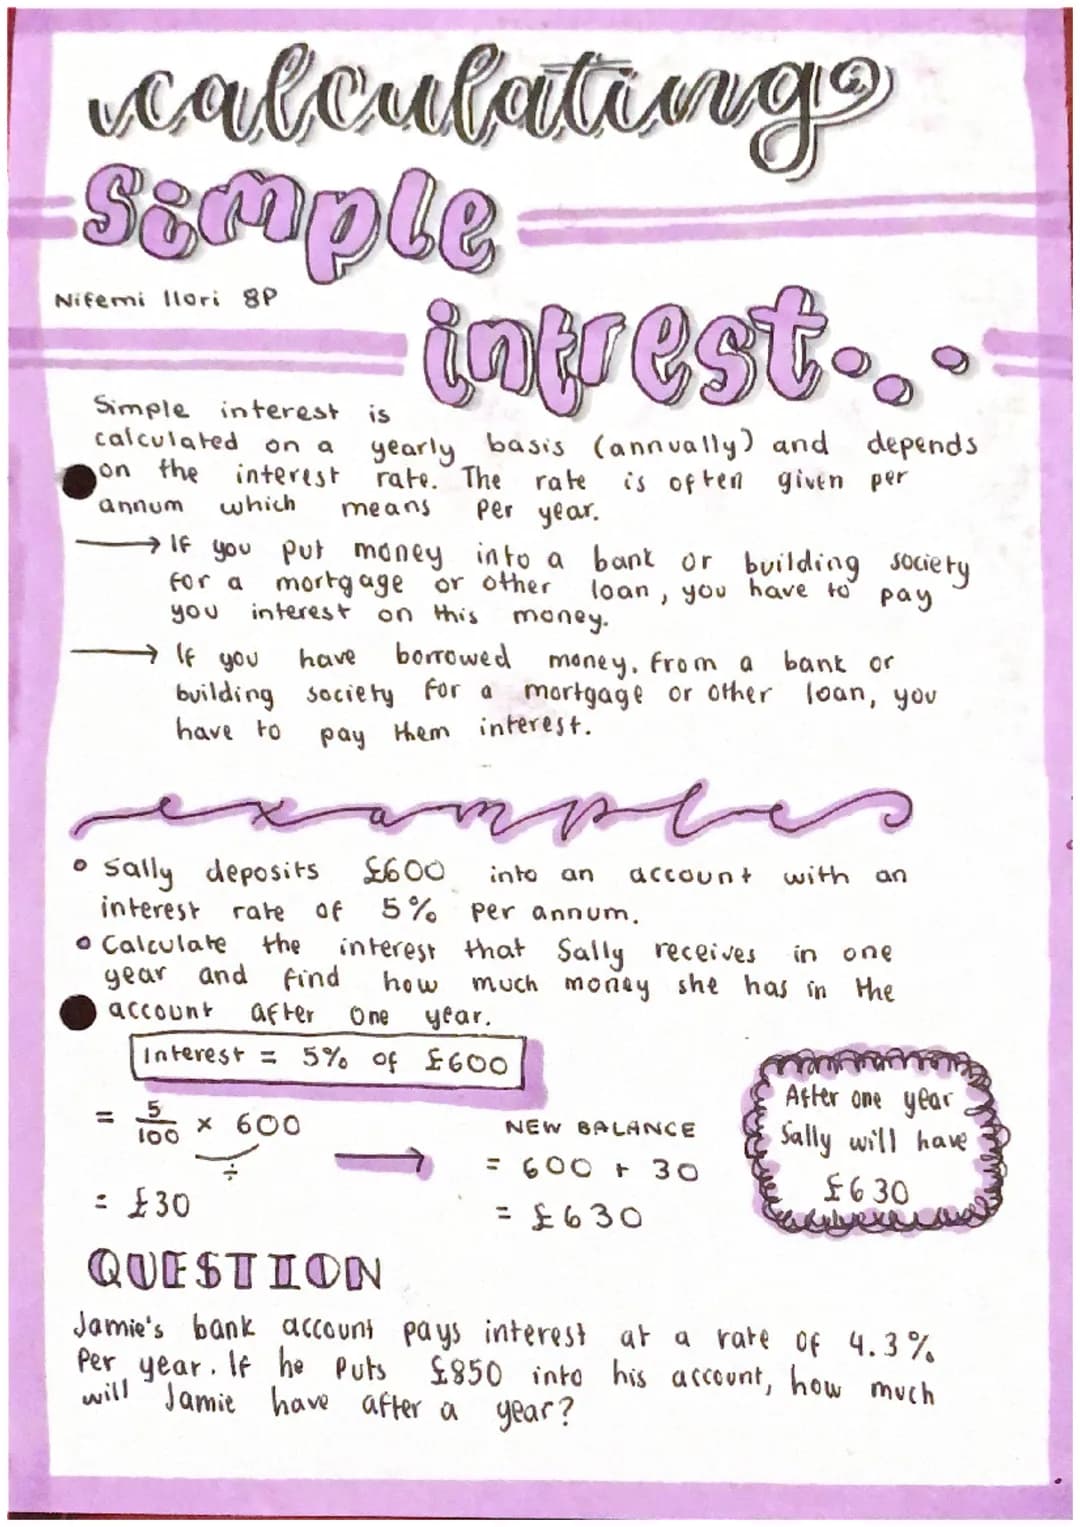 calculating
Simple
Nifemi Ilori 8P
intrest...
Simple interest is
calculated on a yearly basis (annually) and depends
on the interest rate. The rate is often given per
annum which means per year.
→ If you put money into a bank or building society
for a mortgage or other loan, you have to pay
you interest on this money.
→ If you have borrowed money, from a bank or
building society for a mortgage or other loan, you
have to pay them interest.
examples
• Sally deposits £600 into an account with an
interest rate of 5% per annum.
• Calculate the interest that Sally receives in one
year and find how much money she has in the
account after one year.
Interest = 5% of £600
= 5/100 × 600
÷
= £30
→
NEW BALANCE
= 600 + 30
= £630
After one year
Sally will have
£630
QUESTION
Jamie's bank account pays interest at a rate of 4.3%
Per year. If he puts £850 into his account, how much
will Jamie have after a year?